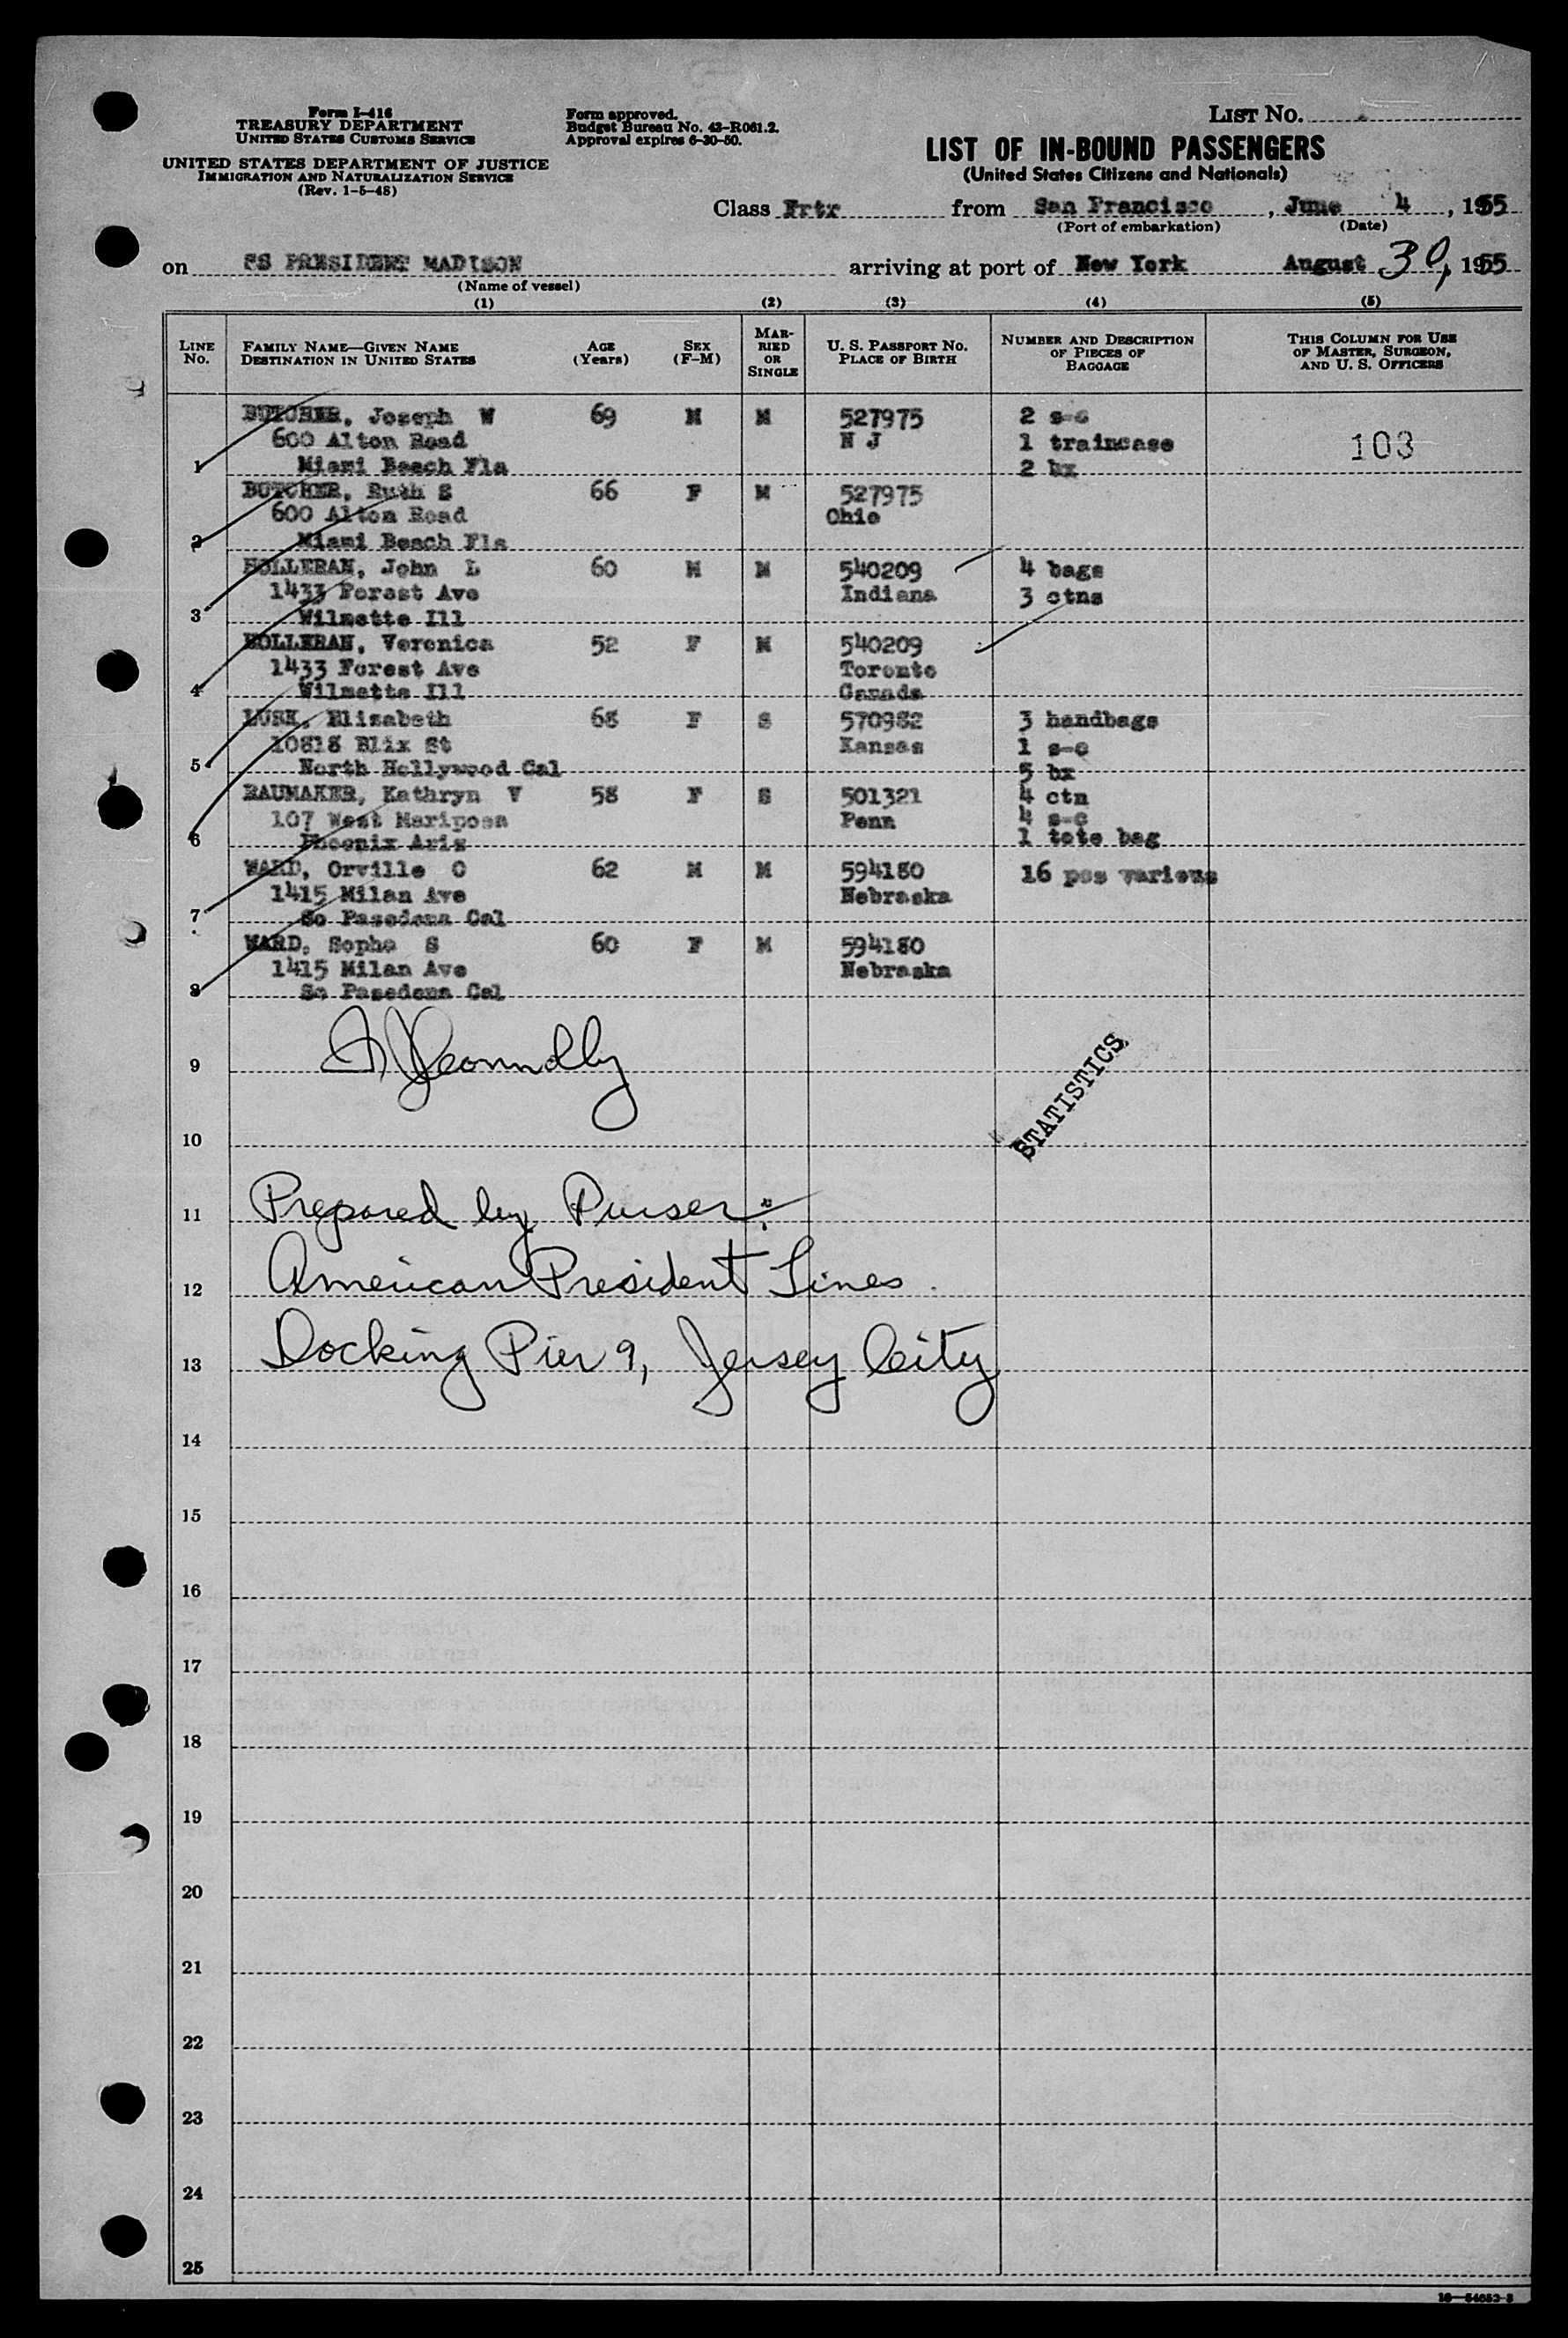 Form I-416
TREASURY DEPARTMENT
UNITED STATES CUSTOMS SERVICE
UNITED STATES DEPARTMENT OF JUSTICE
IMMIGRATION AND NATURALIZATION SERVICE
(Rev. 1-5-48)
Form approved.
Budget Bureau No. 43-R061.2.
Approval expires 6-30-50.
LIST NO.
LIST OF IN-BOUND PASSENGERS
(United States Citizens and Nationals)
Class Frtr from San Francisco , June 4 , 1955
(Port of embarkation) (Date)
on SS PRESIDENT MADISON arriving at port of New York August 30, 1955
(Name of vessel)
(1) (2) (3) (4) (5)
LINE NO.
FAMILY NAME—GIVEN NAME
DESTINATION IN UNITED STATES
AGE
(Years)
SEX
(F-M)
MARRIED OR SINGLE
U. S. PASSPORT NO.
PLACE OF BIRTH
NUMBER AND DESCRIPTION
OF PIECES OF
BAGGAGE
THIS COLUMN FOR USE
OF MASTER, SURGEON,
AND U. S. OFFICERS
BUTCHER, Joseph W 69 M M 527975 2 s-c
600 Alton Road N J 1 traincase 103
1 Miami Beach Fla 2 bx
BUTCHER, Ruth S 66 F M 527975
600 Alton Road Ohio
2 Miami Beach Fla
HOLLERAN, John L 60 M M 540209 4 bags
1433 Forest Ave Indiana 3 ctns
3 Wilmette Ill
HOLLERAN, Veronica 52 F M 540209
1433 Forest Ave Toronto
4 Wilmette Ill Canada
LUSK, Elizabeth 68 F S 570982 3 handbags
10818 Blix St Kansas 1 s-c
5 North Hollywood Cal 5 bx
BAUMAKER, Kathryn V 58 F S 501321 4 ctn
107 West Mariposa Penn 4 s-c
6 Phoenix Ariz 1 tote bag
WARD, Orville C 62 M M 594180 16 pcs various
1415 Milan Ave Nebraska
7 So Pasedena Cal
WARD, Sopha S 60 F M 594180
1415 Milan Ave Nebraska
8 So Pasedena Cal
9
STATISTICS
10
11 Prepared by Purser:
12 American President Lines
13 Docking Pier 9, Jersey City
14
15
16
17
18
19
20
21
22
23
24
25